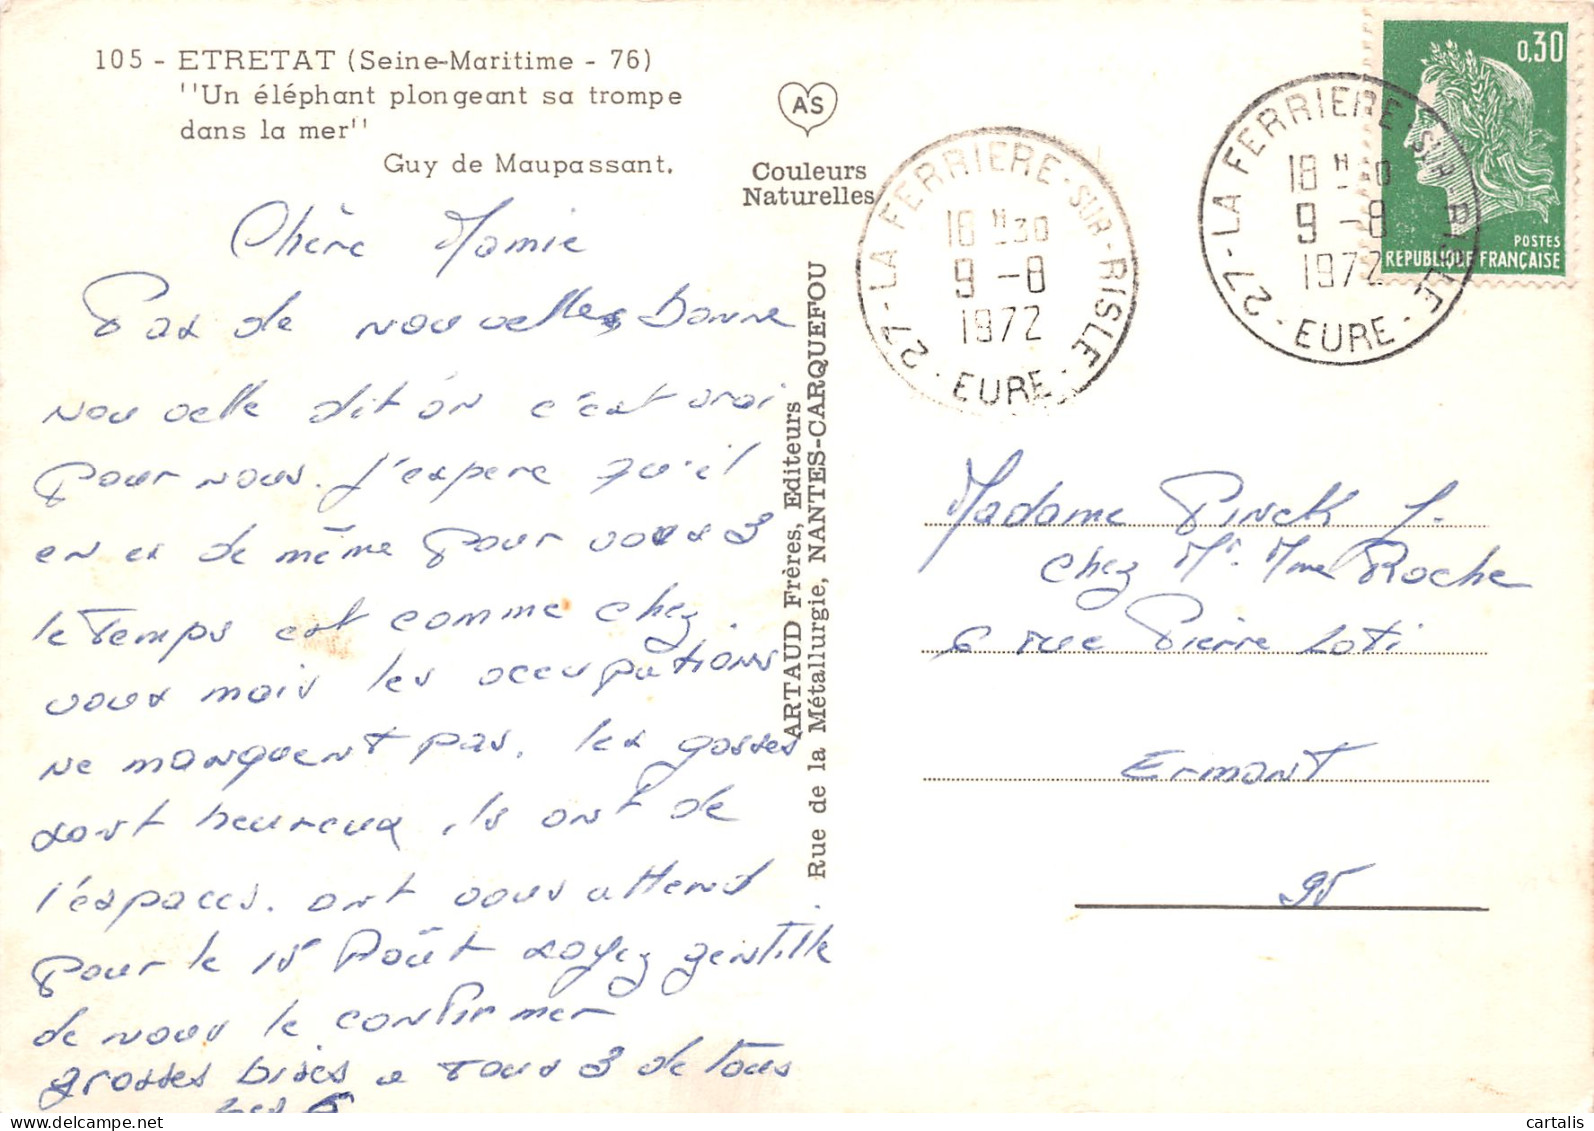 105 - ETRETAT (Seine-Maritime - 76)
''Un éléphant plongeant sa trompe
dans la mer''
Guy de Maupassant.
AS
Couleurs
Naturelles
Chère Mamie
Pas de nouvelles bonne
nouvelle dit on c'est vrai
pour nous. J'espere qu'il
en es de même pour vous 3
le temps est comme chez
vous mais les occupations
ne manquent pas. les gosses
sont heureux ils ont de
l'espaces. ont vous attend
pour le 15 Août soyez gentille
de nous le confirmer
grosses bises a tous 3 de tous
les 6
ARTAUD Frères, Editeurs
Rue de la Métallurgie, NANTES-CARQUEFOU
27 - LA FERRIERE-SUR-RISLE - EURE -
18 H 30
9 -8
1972
0,30
POSTES
REPUBLIQUE FRANÇAISE
27 - LA FERRIERE-SUR-RISLE - EURE -
18 H 30
9 -8
1972
Madame Pinck J.
chez Mr. Mme Roche
6 rue Pierre Loti
Ermont
95
cartalis
© www.delcampe.net